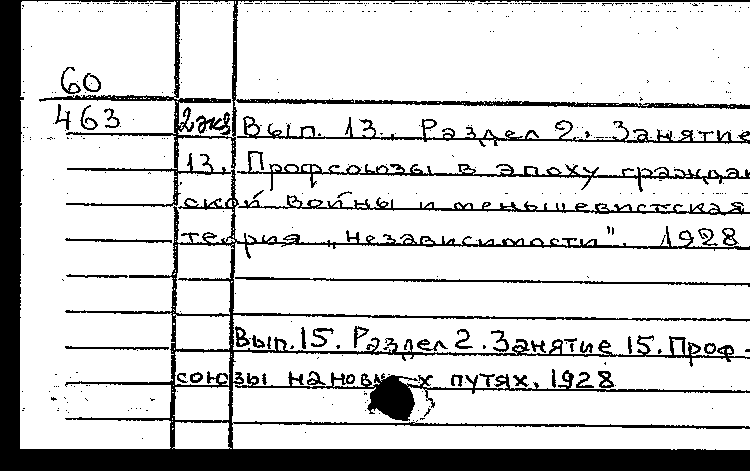 60
463 2 экз Вып. 13. Раздел 2. Занятие
13. Профсоюзы в эпоху граждан
ской войны и меньшевистская
теория „независимости". 1928
Вып. 15. Раздел 2. Занятие 15. Проф-
союзы на новых путях. 1928